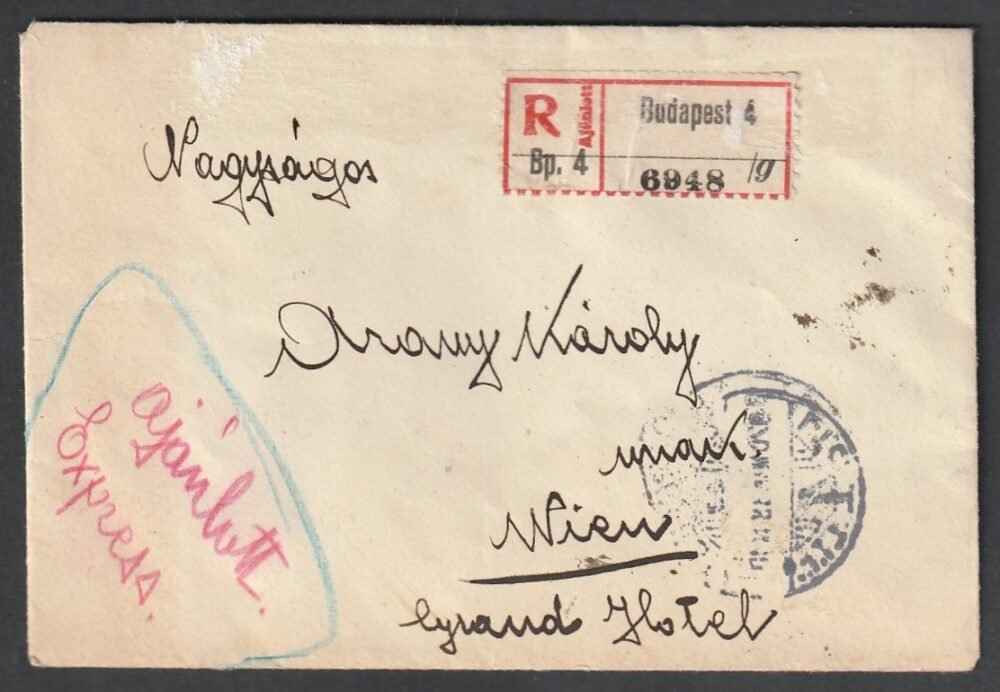 R Ajánlott Budapest 4
Bp. 4 6948 /g
Nagyságos
Arany Károly
urnak
Wien
Grand Hotel
ajánlott.
Express.